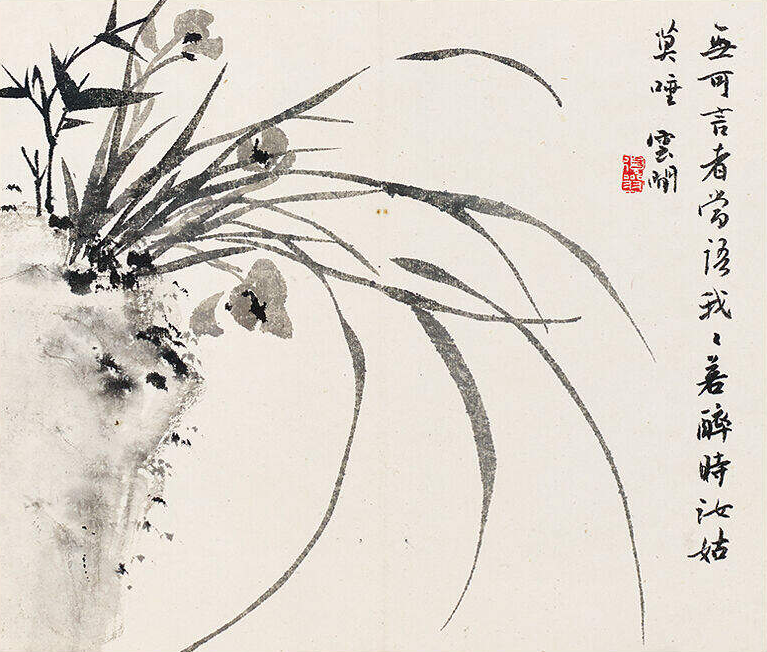 無可言者當語我〻若醉時汝姑
莫睡 雲閒